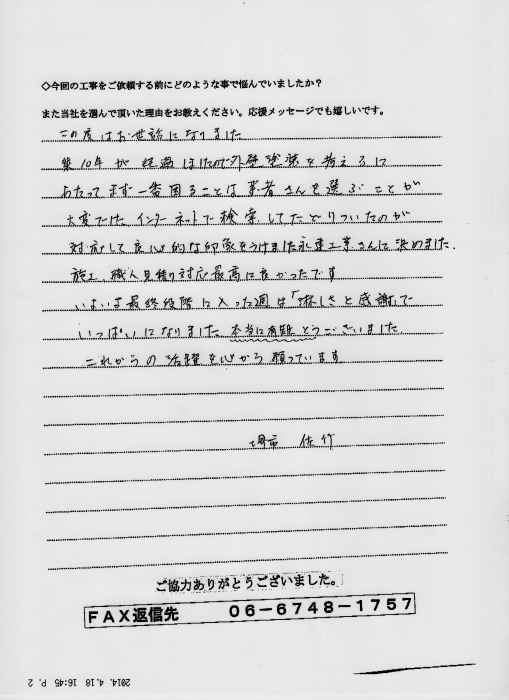 ◇今回の工事をご依頼する前にどのような事で悩んでいましたか？
また当社を選んで頂いた理由をお教えください。応援メッセージでも嬉しいです。
この度はお世話になりました
築10年が経過したので外壁塗装を考えるに
あたってまず一番困ることは業者さんを選ぶことが
大変でした。インターネットで検索してたどりついたのが
対応して良心的な印象をうけました永建工業さんに決めました.
施工、職人見積り対応最高に良かったです
いよいよ最終段階に入った週は「淋しさと感謝」で
いっぱいになりました。本当に有難とうございました
これからの活躍を心から願っています
堺市 佐竹
ご協力ありがとうございました。
FAX返信先 06-6748-1757
2014. 4.18 16:45 P. 2